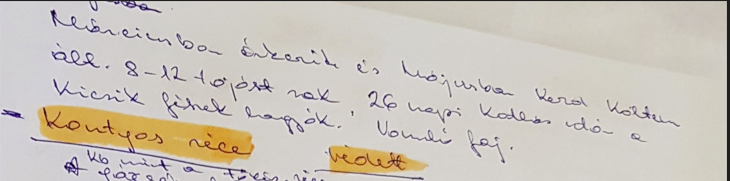 Márciusban érkezik és Májusban kezd költeni
áll. 8-12 tojást rak 26 napi kotlás után a
kicsik fészek hagyók. Vonuló faj.
- Kontyos réce védett
kb mint a